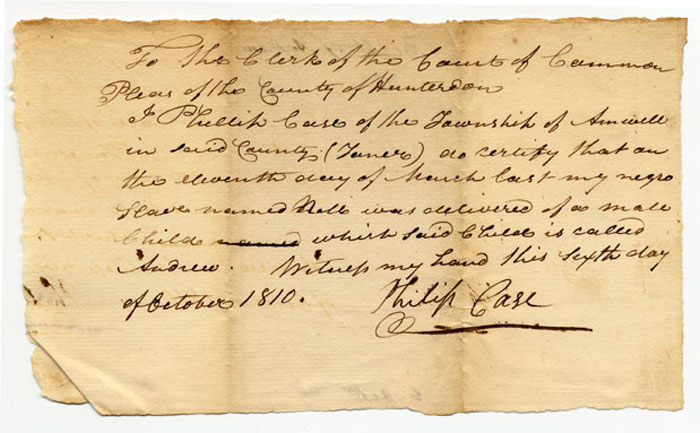 To the Clerk of the Court of Common
Pleas of the County of Hunterdon
I Phillip Case of the Township of Amwell
in said County (Taner) do certify that on
the eleventh day of March last my negro
Slave named Nell was delivered of a male
Child named which said Child is called
Andrew. Witness my hand this Sixth day
of October 1810.
Philip Case